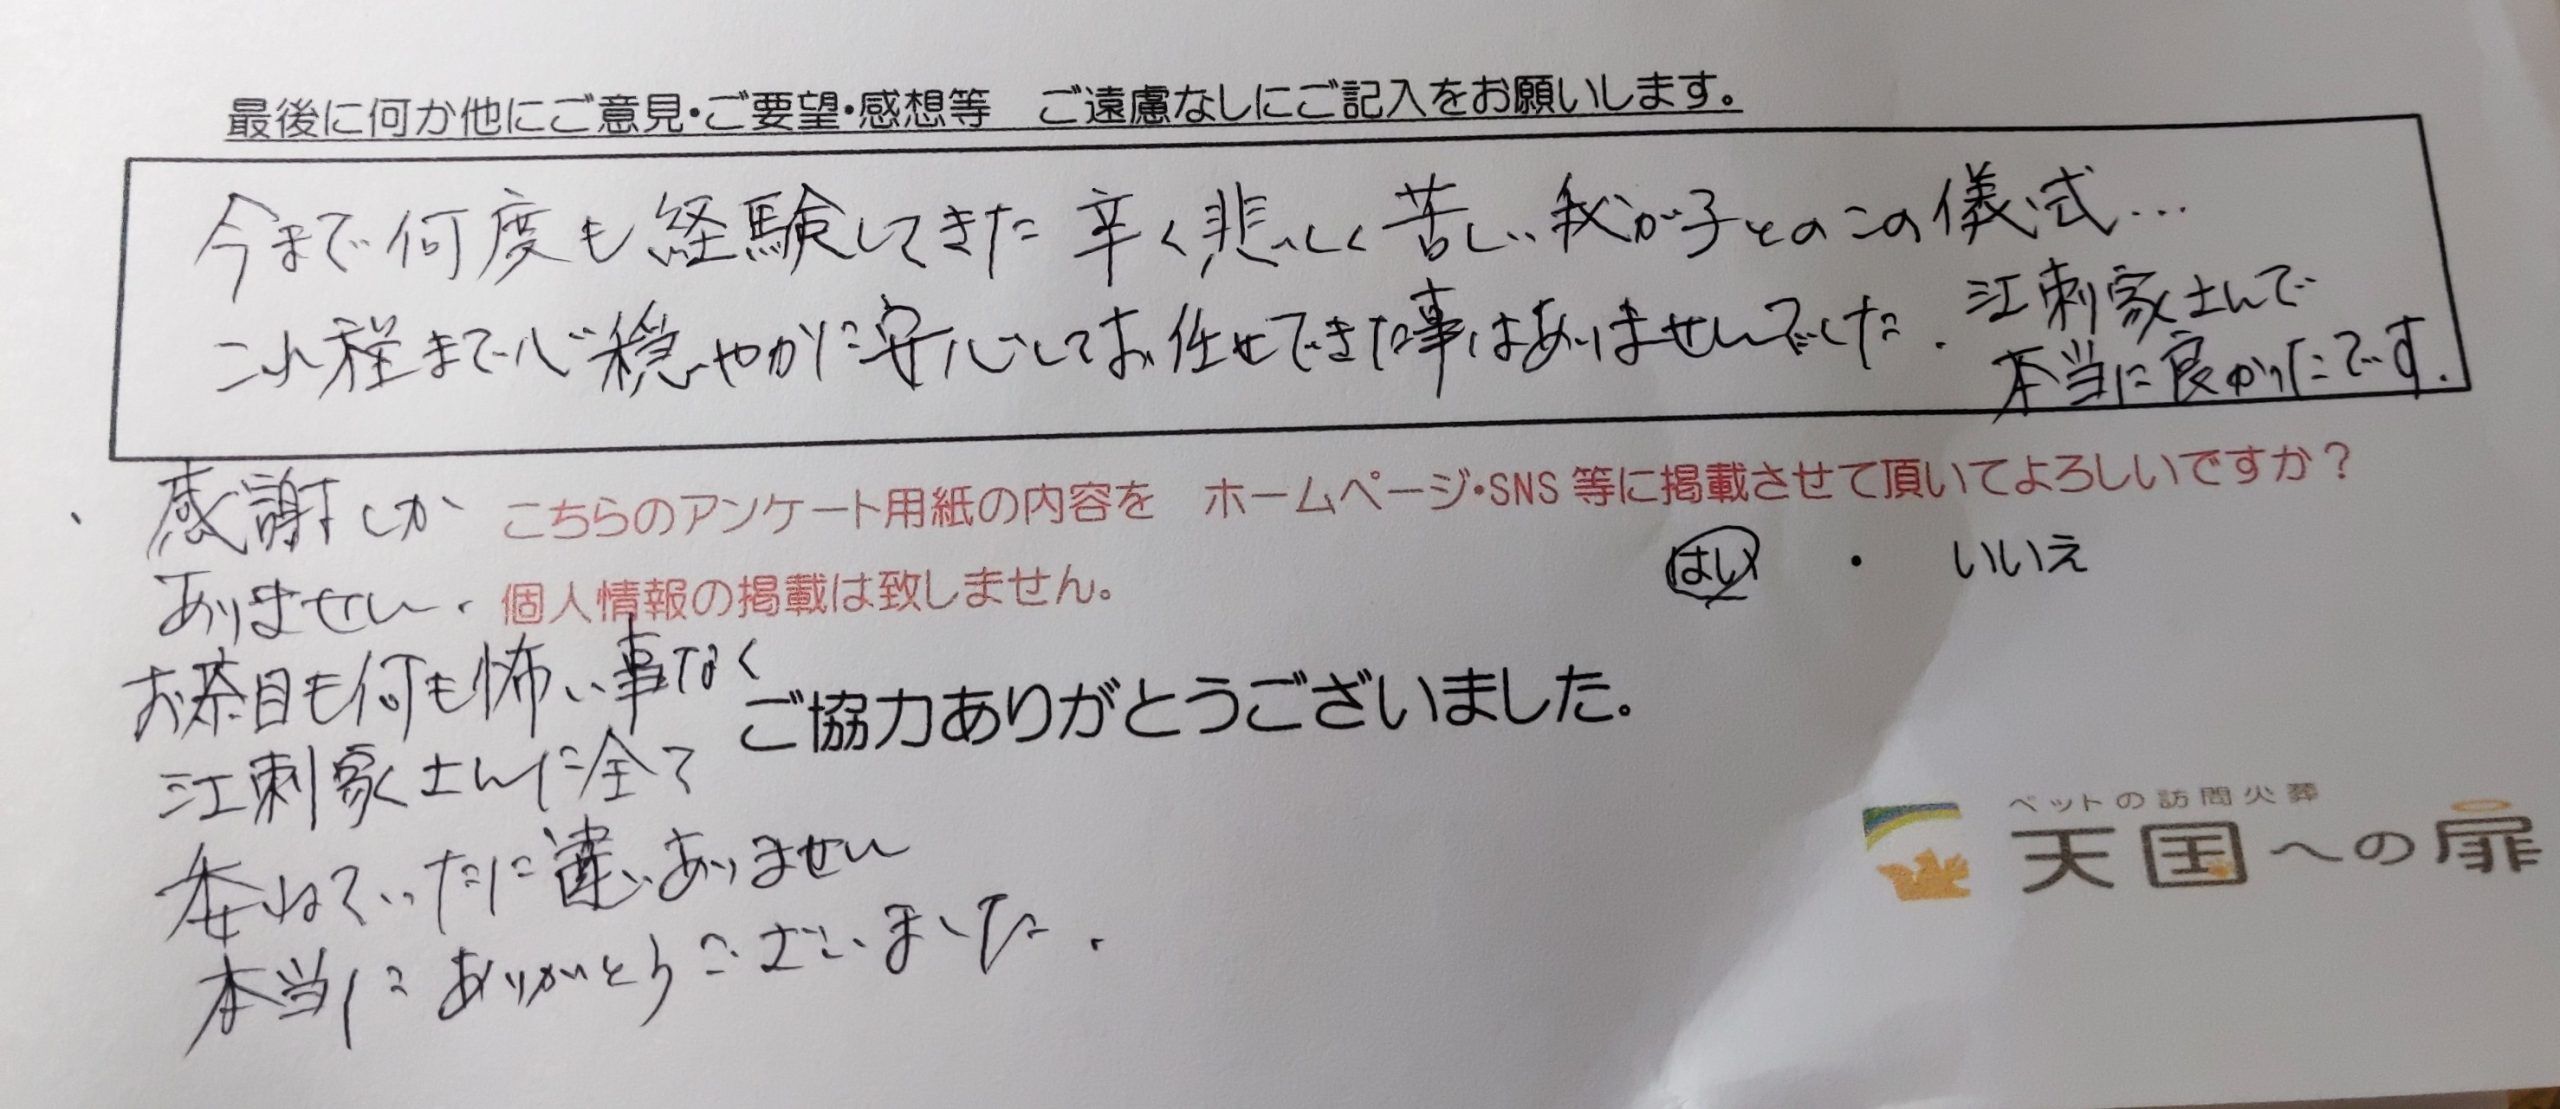 最後に何か他にご意見・ご要望・感想等　ご遠慮なしにご記入をお願いします。
今まで何度も経験してきた辛く悲しく苦しい我が子とのこの儀式…
これ程まで心穏やかに安心してお任せできた事はありませんでした.
江刺家さんで
本当に良かったです.
感謝しか
ありません.
こちらのアンケート用紙の内容を　ホームページ・SNS 等に掲載させて頂いてよろしいですか？
はい ・ いいえ
個人情報の掲載は致しません。
お茶目も何も怖い事なく
江刺家さんに全て
委ねていたに違いありません
本当にありがとうございました.
ご協力ありがとうございました。
ペットの訪問火葬
天国への扉